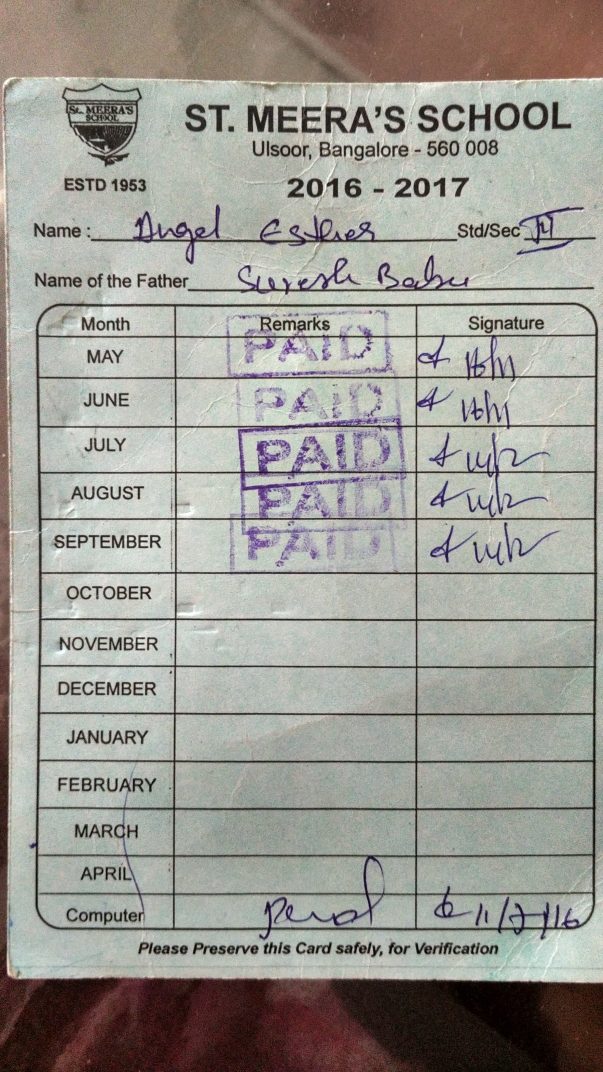 ST. MEERA'S SCHOOL
ST. MEERA'S SCHOOL
Ulsoor, Bangalore - 560 008
ESTD 1953
2016 - 2017
Name : Angel Esther Std/Sec
Name of the Father Suresh Babu
Month Remarks Signature
MAY PAID
JUNE PAID
JULY PAID
AUGUST PAID
SEPTEMBER PAID
OCTOBER
NOVEMBER
DECEMBER
JANUARY
FEBRUARY
MARCH
APRIL
Computer 11/7/16
Please Preserve this Card safely, for Verification